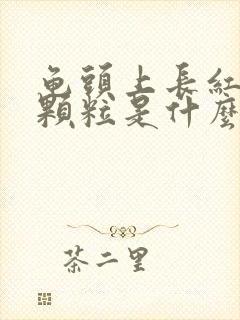 龟頭上長紅
顆粒是什麼
茶二里